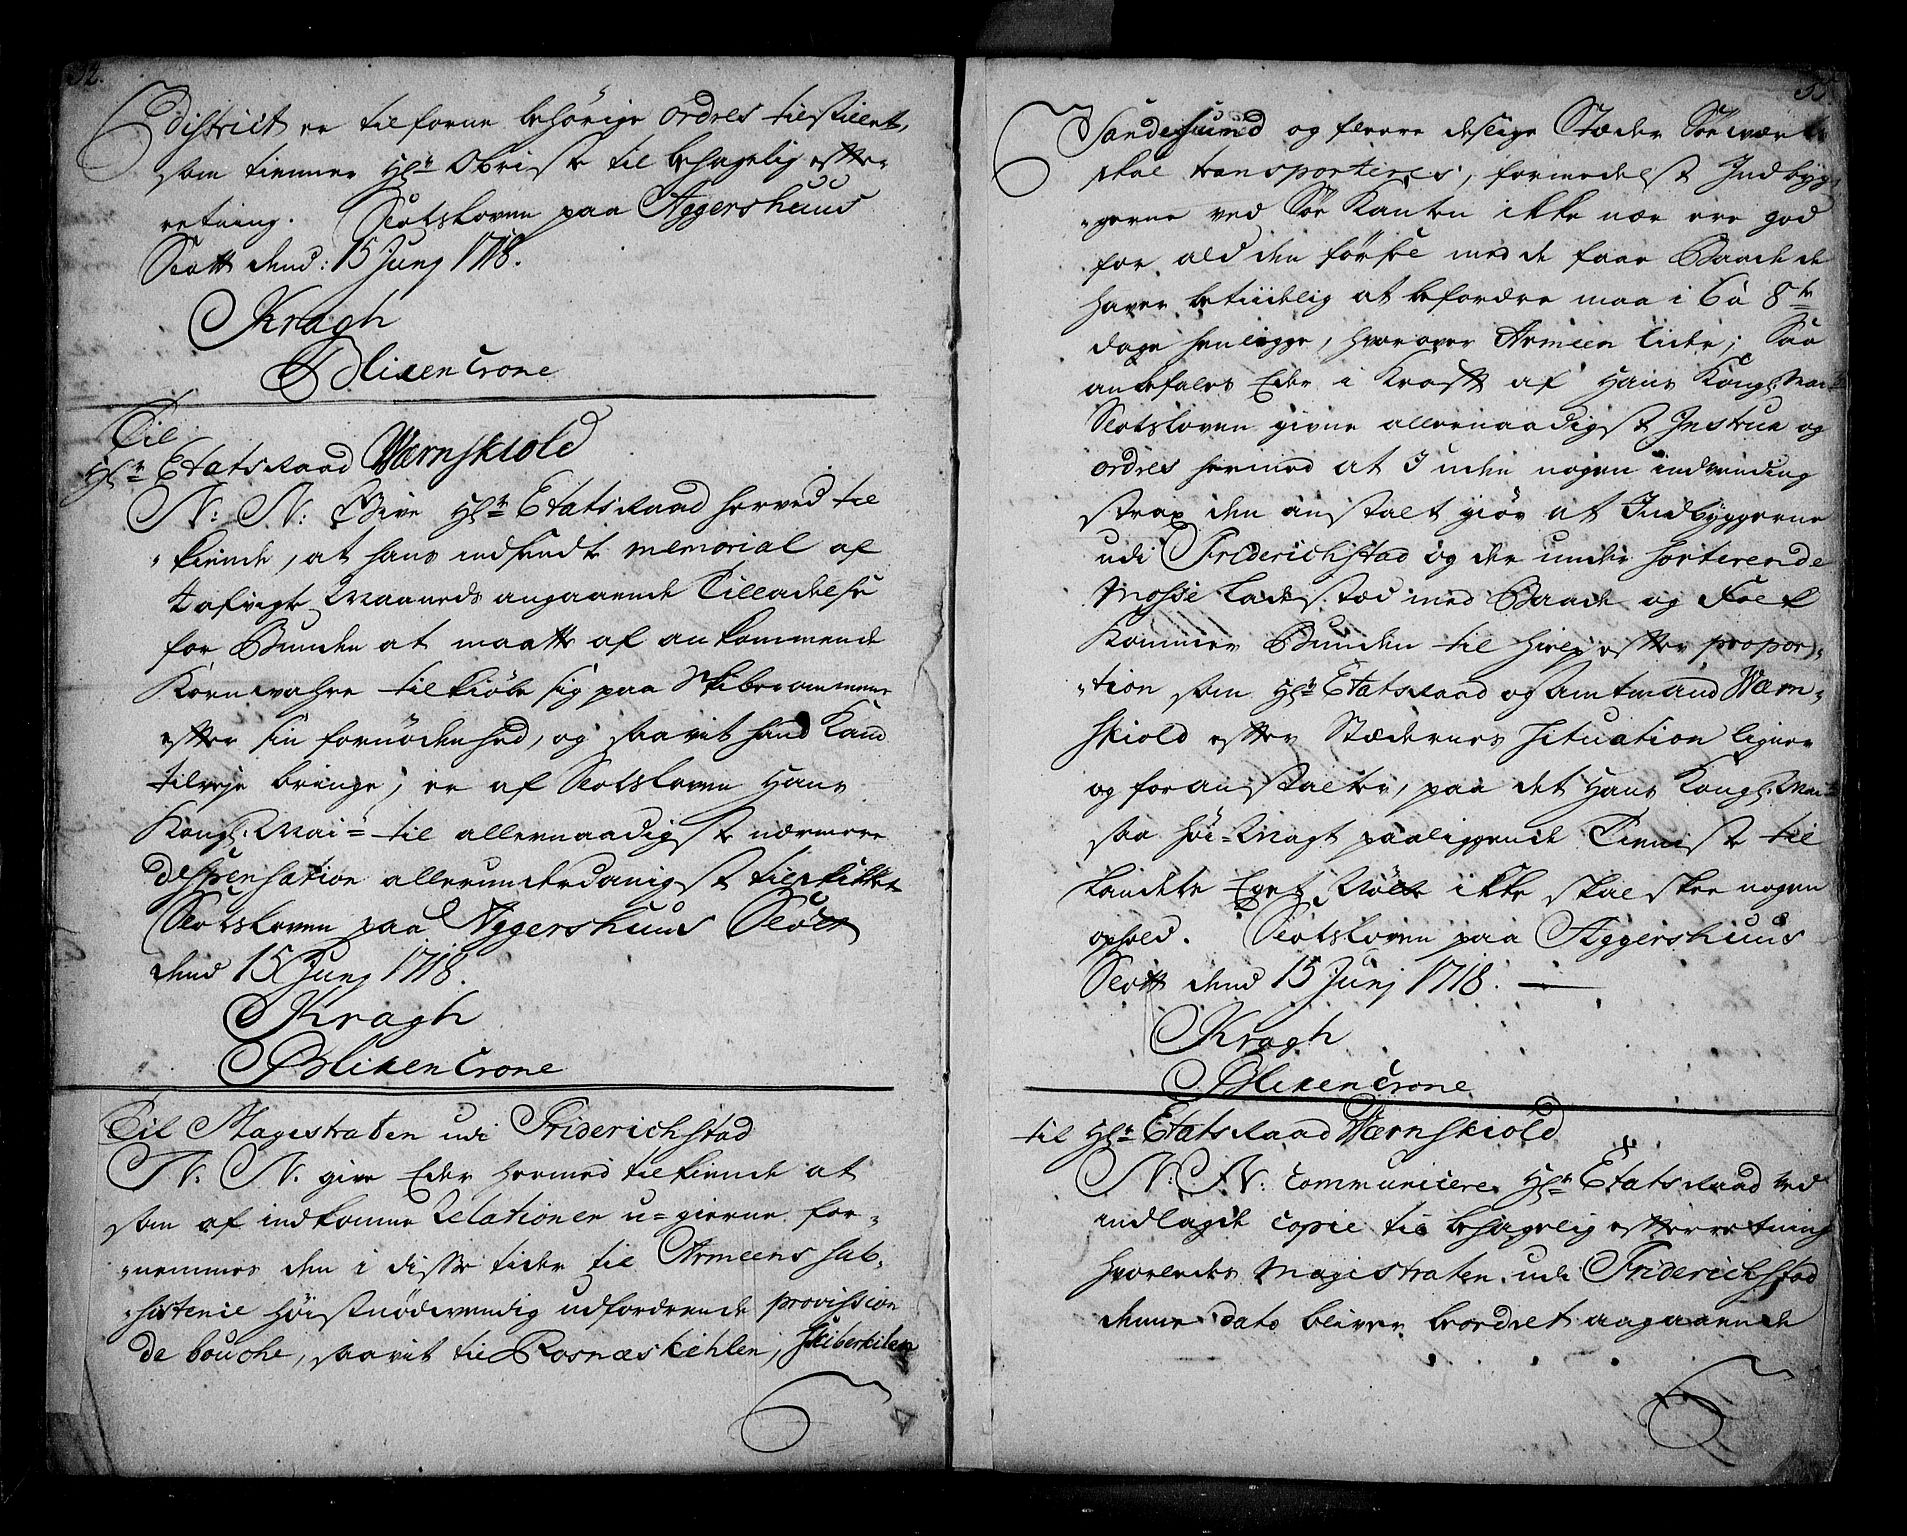 32.
District er tilforne behörige ordres tilstillet,
som tienner Hr. Obriste til behagelig efter-
retning. Slotsloven paa Aggershuus
Slott dend: 15 Junj 1718.
Kragh
Blixencrone
Til
Hr. Etatsraad Wærnskiold
N: N: Give Hr. Etatsraad herved til
kiende, at hans indsendte memorial af
afvigte Maaneds angaaende Tilladelse
for Bunden at maatte af ankommende
Kornwahre tilkiöbe sig paa Skiberommene
efter sin fornödenhed, og saavit hand kand
tilveje bringe, er af Slotsloven Hans
Kongl: Mai= til allernaadigste nærmere
dispensation allerunderdanigst tilskikket
Slotsloven paa Aggershuus Slott
dend 15 Junj 1718.
Kragh
Blixencrone
Til Magistraten udi Friderichstad
N: N: give Eder hermed tilkiende at
som af indkomne Relationer u-gierne for-
nemmes den i disse tider til Armeens sub-
sistence höistnödvendig udfordrende provission
de bouche, saavit til Rosnæskihlen, Skiberkilen
33.
Sandesund og flerre deslige Stæder
skal transporteres, formedelst Indbyg-
gerne ved Söe Kanten ikke nær ere god
for ald den förse med de faae Baade de
haver betiidelig at befordre maa i 6 à 8te
dage henligge, hvorover Armeen lider; Saa
anbefales Eder i Kraft af Hans Kongl: Mai
Slotsloven givne allernaadigste Instrux og
ordres hermed at I uden nogen indvending
strax den anstalt giör at Indbyggerne
udi Friderichstad og der under sorterende
Mosse Ladestæd med Baade og Folk
kommer Bunden til hielp efter propor-
tion som Hr. Etatsraad og Amtmand Wærn-
skiold efter Stædernes situation ligner
og foranstalter, paa det Hans Kongl: Mai
saa höi-Magt paaliggende Tieniste til
Landets Eget Nölle ikke skal skee nogen
ophold. Slotsloven paa Aggershuus
Slott dend 15 Junj 1718.
Kragh
Blixencrone
til Hr. Etatsraad Wærnskiold
N: N: communicere Hr. Etatsraad ved
indlagde copie til behagelig efterretning
hvorledes Magistraten udi Friderichstad
denne dato bliver beordret angaaende